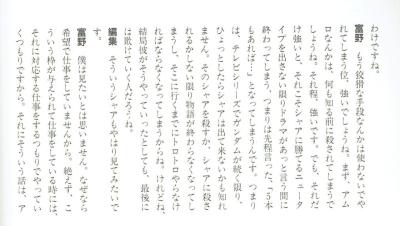 わけですね。
富野 もう狡猾な手段なんかは使わないでや
れてしまう位、強いでしょうね。まず、アム
ロなんかは、何も知る前に殺されてしまうで
しょうね。それ程、強いです。でも、それだ
け強いと、それこそシャアに勝てるニュータ
イプを出さない限りドラマがあっと言う間に
終わってしまう、つまりは先程言った、「5本
もあれば…」となってしまうんです。つまり
は、テレビシリーズでガンダムが続く限り、
ひょっとしたらシャアは出て来ないかも知れ
ません。そのシャアを殺すか、シャアに殺さ
れるかしない限り物語が終わらなくなってし
まうし、そこに行くまでにトロトロやらなけ
ればならなくなってしまうからね。けれどね、
結局彼がそうやっていったとしても、最後に
は敗けていく人だろうね。
編集 そういうシャアもやはり見てみたいで
す。
富野 僕は見たいとは思いません。なぜなら
希望で仕事をしていませんから。絶えず、こ
ういう枠が与えられて仕事をしている時には、
それに対応する仕事をするつもりでやってい
くつもりですから。それにそういう話は、ア